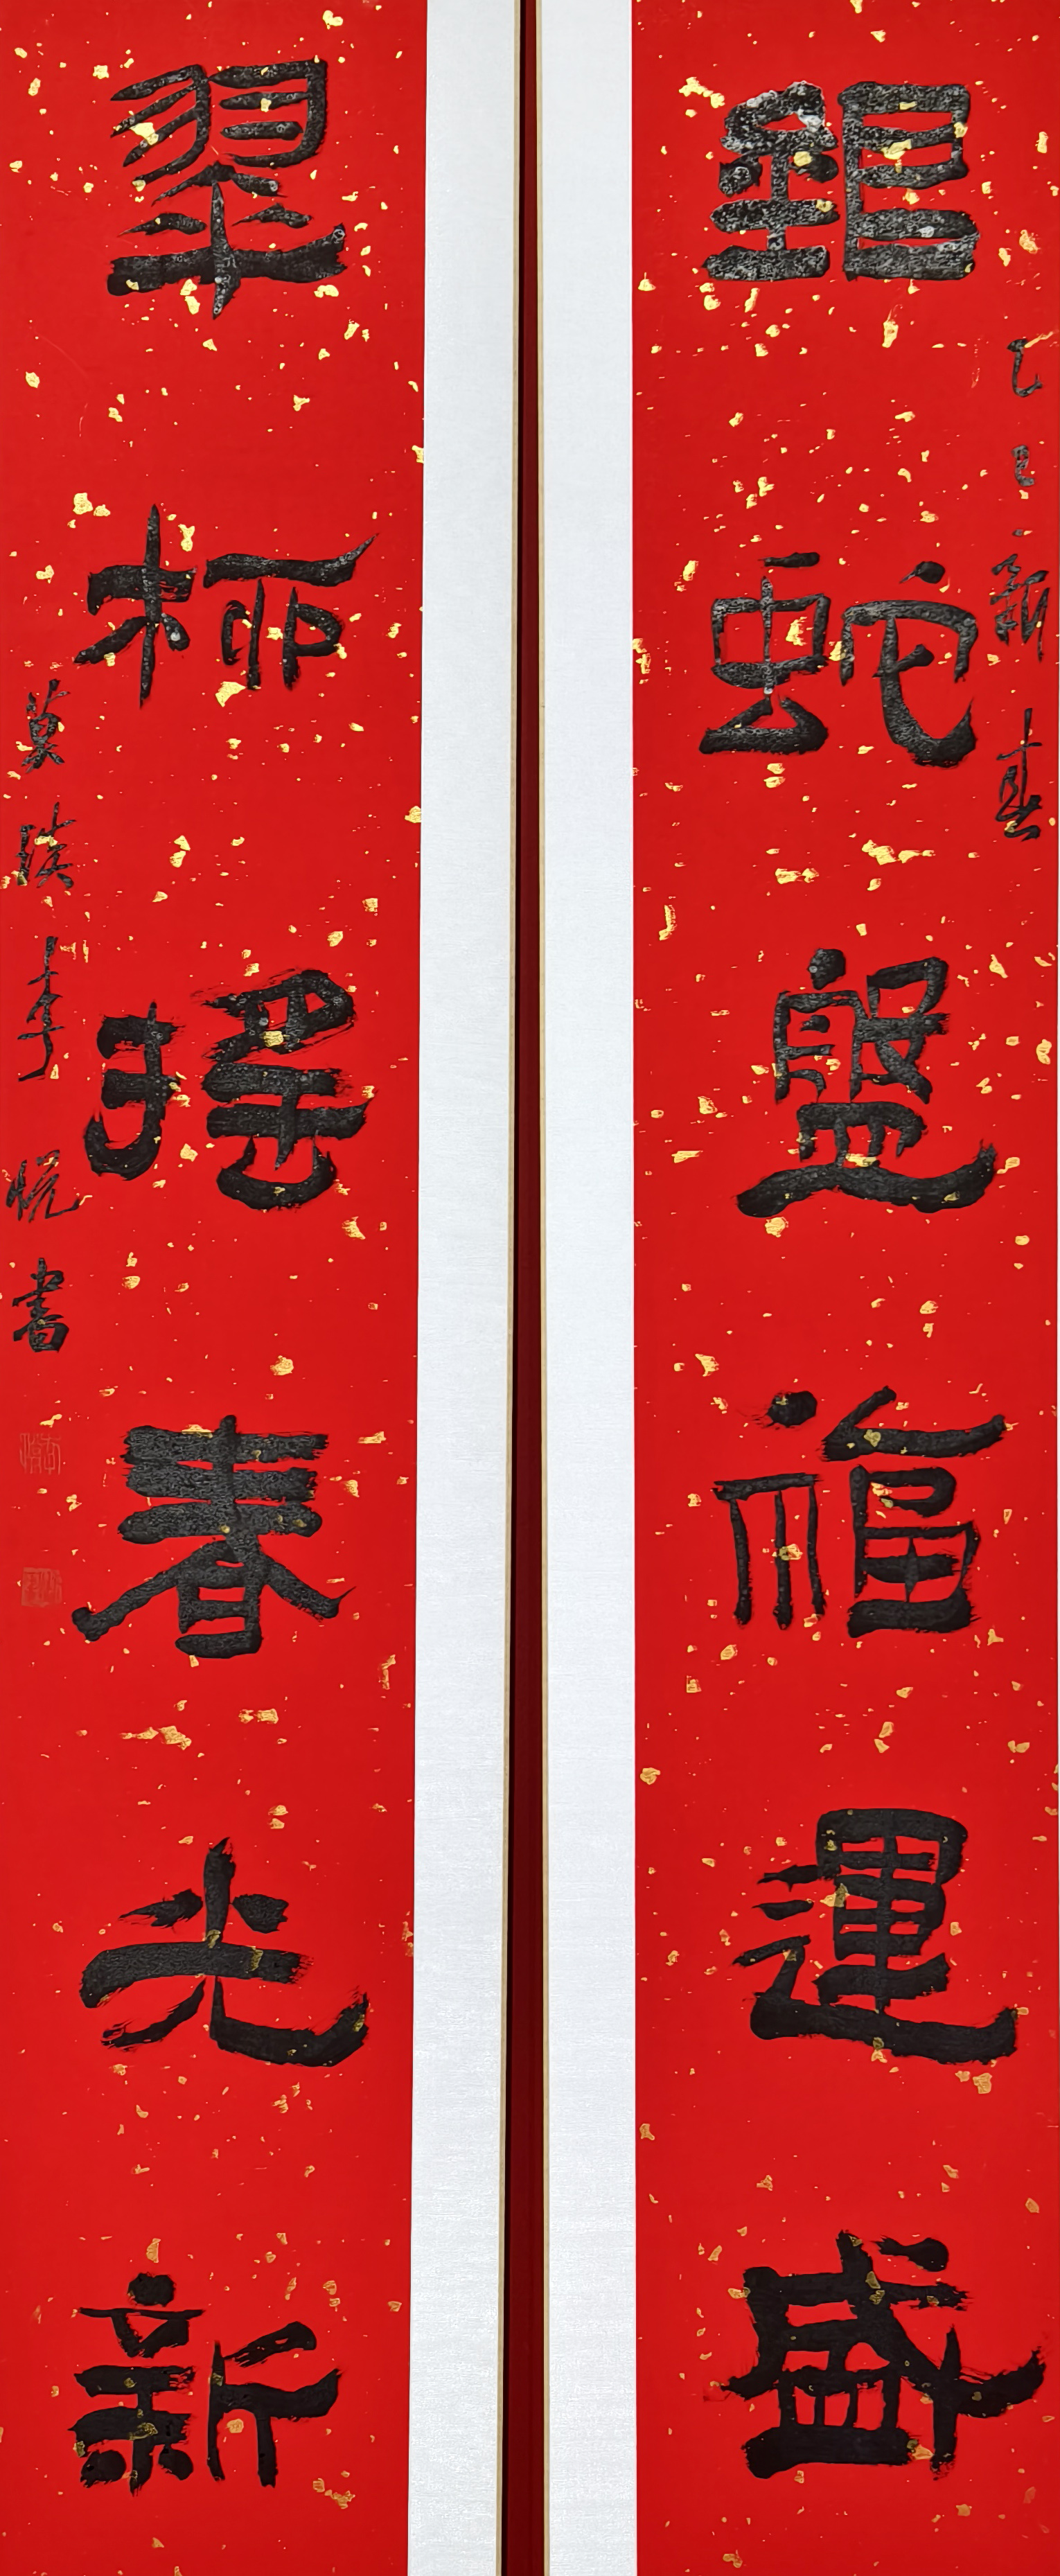 銀蛇盤福運盛
乙巳新春
翠柳搖春光新
李悦書